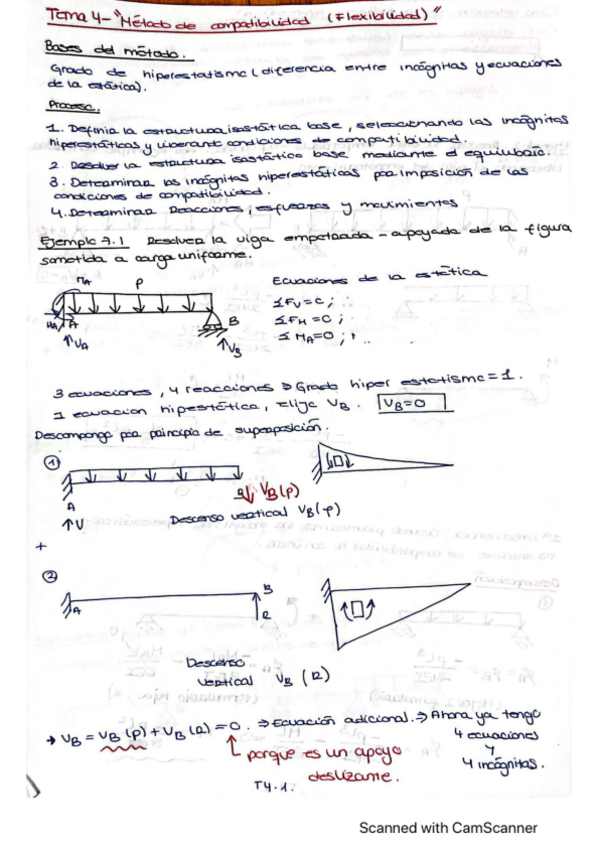 Tema 4- "Método de compatibilidad (Flexibilidad)"
Bases del método.
Grado de hiperestatismo (diferencia entre incógnitas y ecuaciones
de la estática).
Proceso.
1. Definir la estructura isostática base, seleccionando las incógnitas
hiperestáticas y liberando condiciones de compatibilidad.
2. Resolver la estructura isostática base mediante el equilibrio.
3. Determinar las incógnitas hiperestáticas por imposición de las
condiciones de compatibilidad.
4. Determinar Reacciones, esfuerzos y movimientos
Ejemplo 7.1 Resolver la viga empotrada-apoyada de la figura
sometida a carga uniforme.
MA P
Ecuaciones de la estática
ΣFV=0;
ΣFH=0;
ΣMA=0;
HA A B
VA VB
3 ecuaciones, 4 reacciones → Grado hiper estatismo=1.
1 ecuacion hipestática, elijo VB. VB=0
Descompongo por principio de superposición.
1
VB(p)
A
V
Descenso vertical VB(p)
+
2
B
A R
Descenso
vertical VB (R)
→ VB = VB(p) + VB(R) = 0. ⇒ Ecuación adicional. ⇒ Ahora ya tengo
4 ecuaciones
y
4 incógnitas.
porque es un apoyo
deslizante.
T4.1.
Scanned with CamScanner